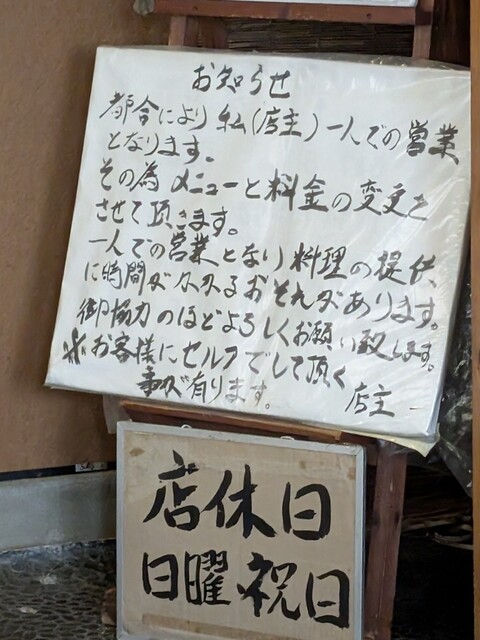 お知らせ
都合により私(店主)一人での営業
となります。
その為メニューと料金の変更を
させて頂きます。
一人での営業となり料理の提供
に時間がかかるおそれがあります。
御協力のほどよろしくお願い致します。
※お客様にセルフでして頂く
事が有ります。
店主
店休日
日曜祝日